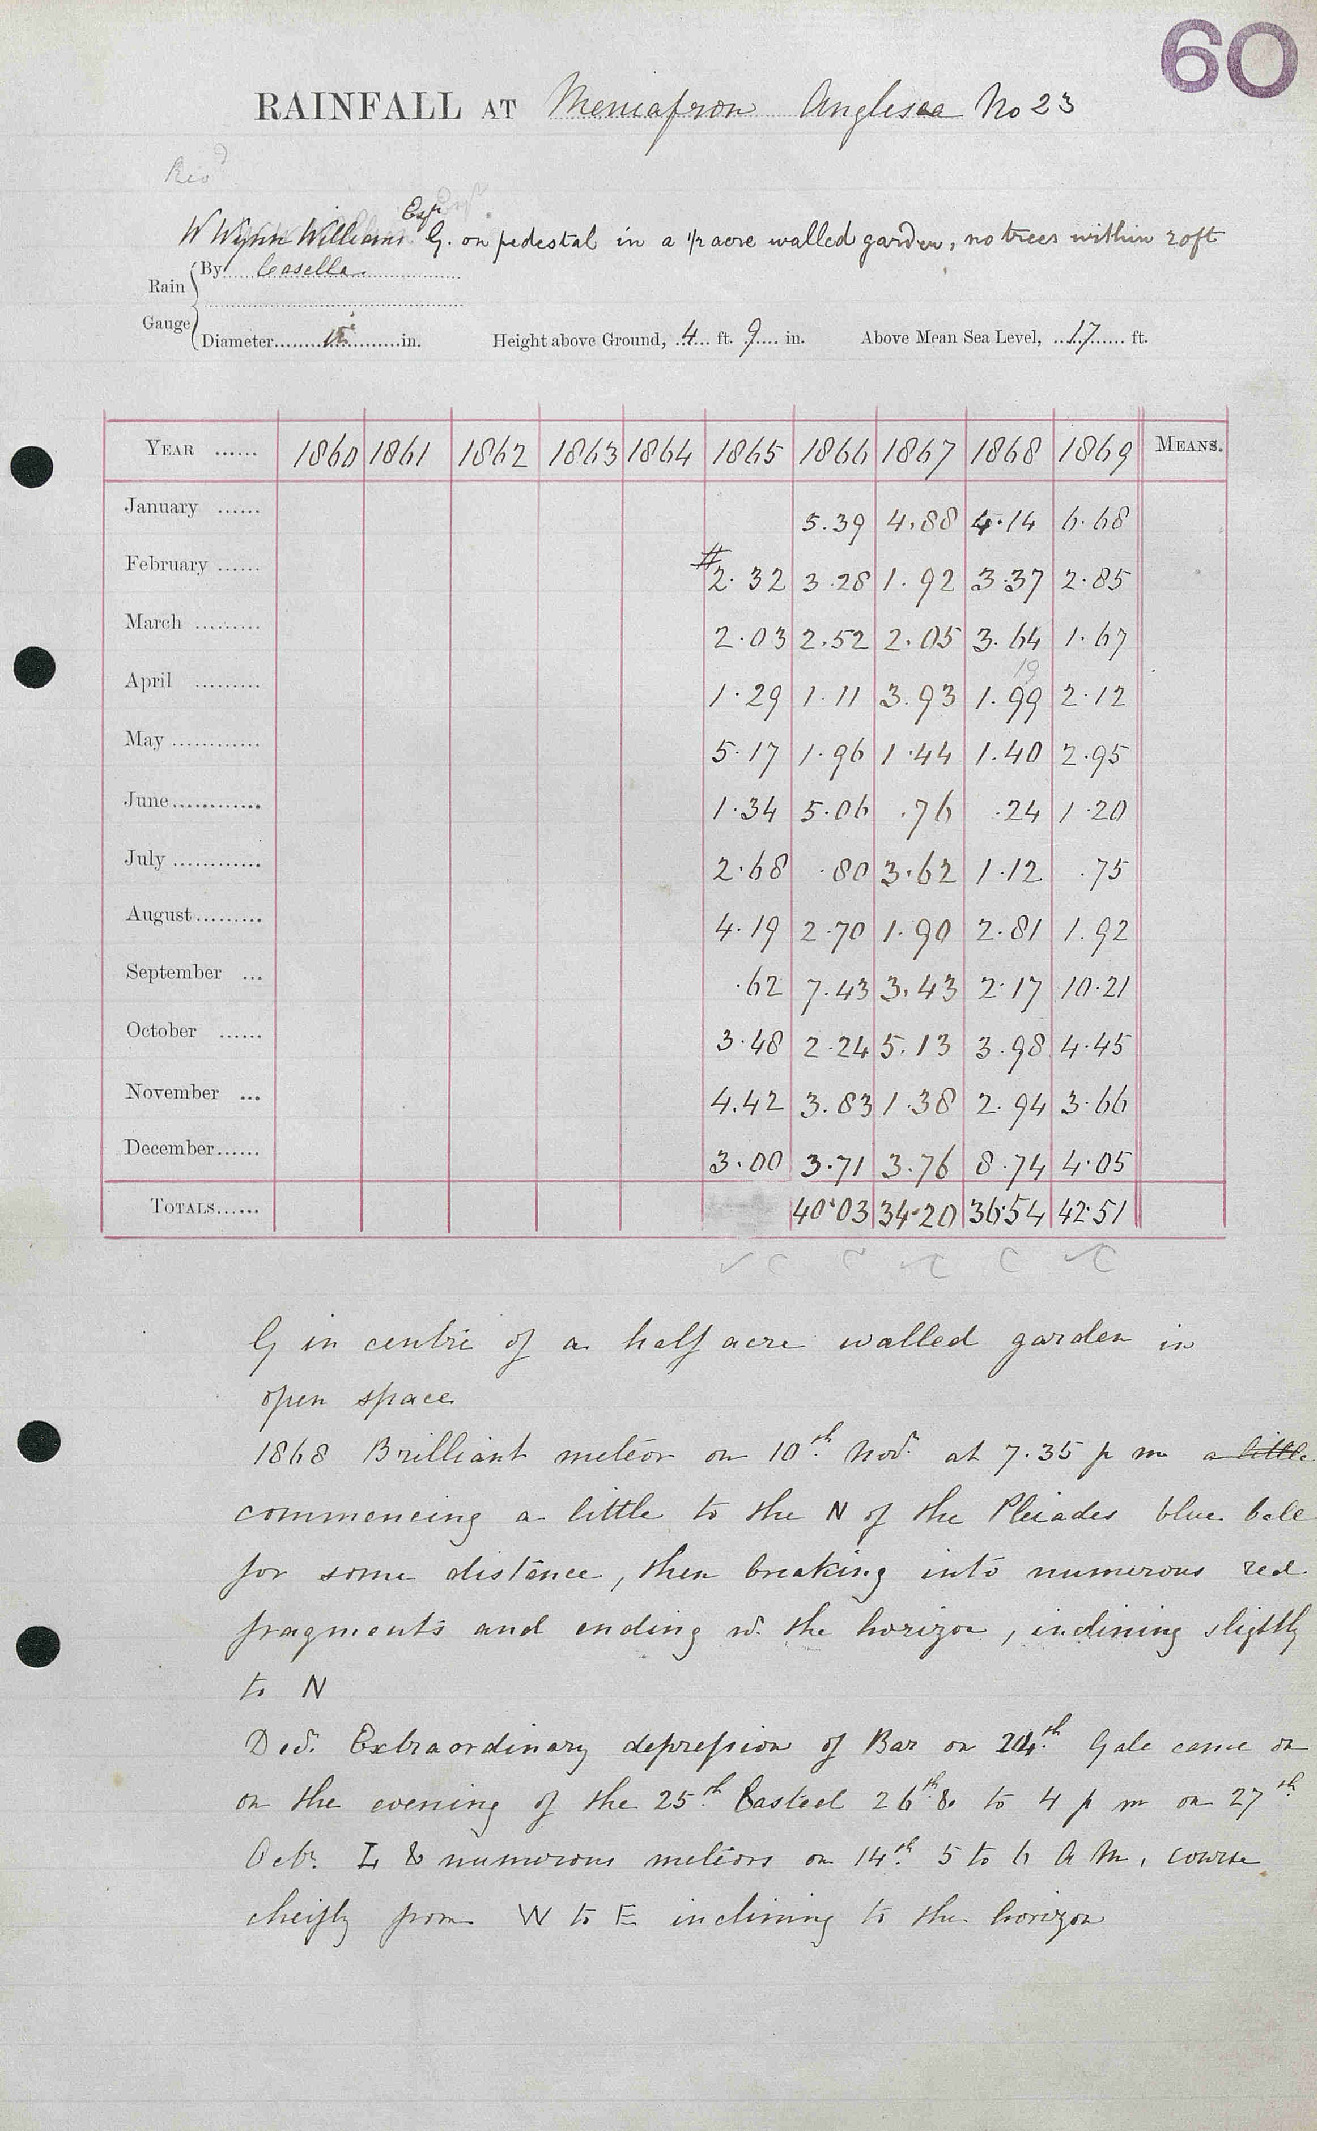 60
RAINFALL AT Meniafron Anglesea No 23
Revd
W Wynn Williams Esqr G. on pedestal in a 1/2 acre walled garden, no trees within 20ft
Rain Gauge { By Casella
Diameter in. Height above Ground, 4 ft. 9 in. Above Mean Sea Level, 17 ft.
YEAR 1860 1861 1862 1863 1864 1865 1866 1867 1868 1869 MEANS.
January 5.39 4.88 4.14 6.68
February #2.32 3.28 1.92 3.37 2.85
March 2.03 2.52 2.05 3.64 1.67
19
April 1.29 1.11 3.93 1.99 2.12
May 5.17 1.96 1.44 1.40 2.95
June 1.34 5.06 .76 .24 1.20
July 2.68 .80 3.62 1.12 .75
August 4.19 2.70 1.90 2.81 1.92
September .62 7.43 3.43 2.17 10.21
October 3.48 2.24 5.13 3.98 4.45
November 4.42 3.83 1.38 2.94 3.66
December 3.00 3.71 3.76 8.74 4.05
TOTALS 40.03 34.20 36.54 42.51
G in centre of a half acre walled garden in
open space
1868 Brilliant meteor on 10th Novr at 7.35 p m a little
commencing a little to the N of the Pleiades blue ball
for some distance, then breaking into numerous red
fragments and ending nr the horizon, inclining slightly
to N
Decr. Extraordinary depression of Bar on 24th Gale came on
on the evening of the 25th lasted 26th & to 4 p m on 27th
Octr. L & numerous meteors on 14th 5 to 6 A M, course
cheifly from W to E inclining to the horizon